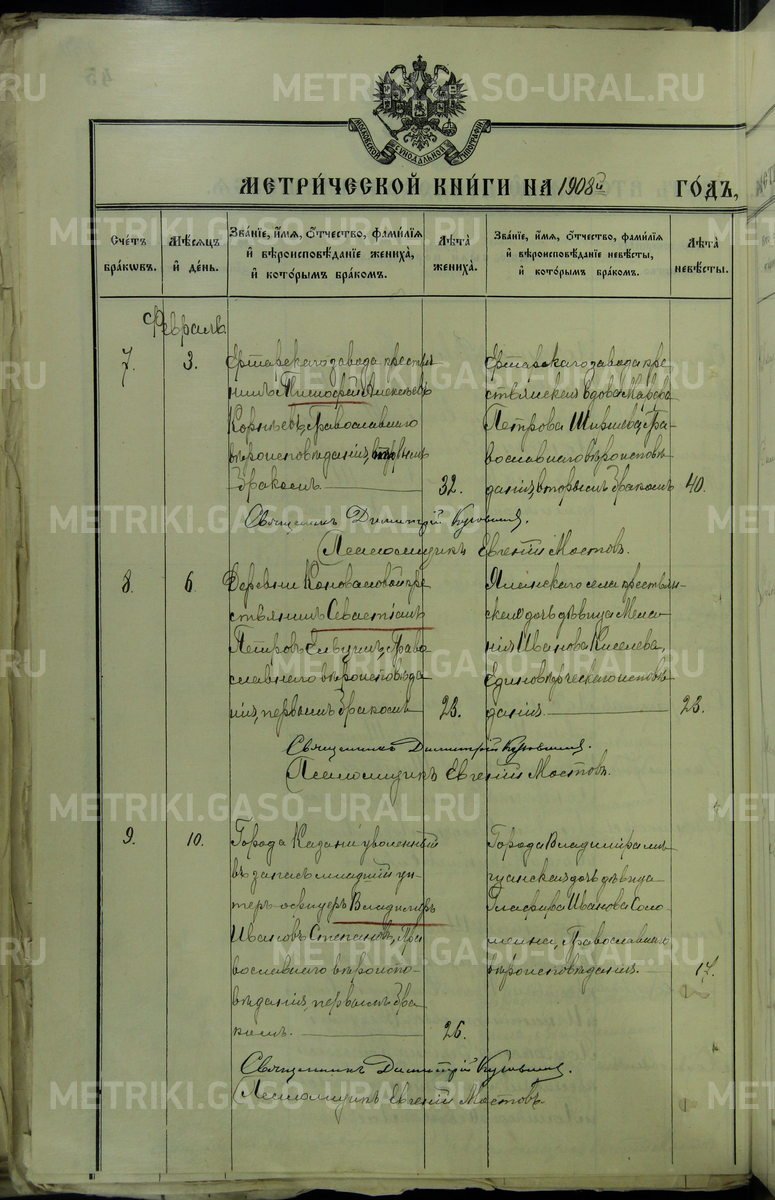 МОСКОВСКОЙ СѴНОДАЛЬНОЙ ТИПОГРАФІИ
МЕТРИ́ЧЕСКОЙ КНИ́ГИ НА 1908й ГО́ДЪ,
Сче́тъ бра́ковъ.
Мѣ́сяцъ и де́нь.
Зва́ніе, и́мя, о́тчество, фами́лія и вѣроисповѣ́даніе жениха́, и кото́рымъ бра́комъ.
Лѣ́та жениха́.
Зва́ніе, и́мя, о́тчество, фами́лія и вѣроисповѣ́даніе невѣ́сты, и кото́рымъ бра́комъ.
Лѣ́та невѣ́сты.
Февраль
7.
3.
Ертарскаго завода крестья-
нинъ Тимофей Алексѣевъ
Корнѣевъ, Православнаго
вѣроисповѣданія,
бракомъ
32.
Ертарскаго завода кре-
стьянская вдова Марѳа
Петрова Ширшева, Пра-
вославнаго вѣроисповѣ-
данія, вторымъ бракомъ
40.
Священникъ Димитрій
Псаломщикъ Евгеній Мостовъ.
8.
6.
Деревни Коноваловой кре-
стьянинъ Севастіанъ
Петровъ Право-
славнаго вѣроисповѣда-
нія, первымъ бракомъ
23.
Яланскаго села крестьян-
ская дочь дѣвица Мела-
нія Иванова Киселева,
Единовѣрческаго исповѣ-
данія.
23.
Священникъ Димитрій
Псаломщикъ Евгеній Мостовъ.
9.
10.
Города Казани уволенный
въ запасъ младшій ун-
теръ-офицеръ Владиміръ
Ивановъ Степановъ, Пра-
вославнаго вѣроиспо-
вѣданія, первымъ бра-
комъ.
26.
Города Владиміра мѣ-
щанская дочь дѣвица
Глафира Иванова Соло-
менна, Православнаго
вѣроисповѣданія.
17.
Священникъ Димитрій
Псаломщикъ Евгеній Мостовъ.
METRIKI.GASO-URAL.RU